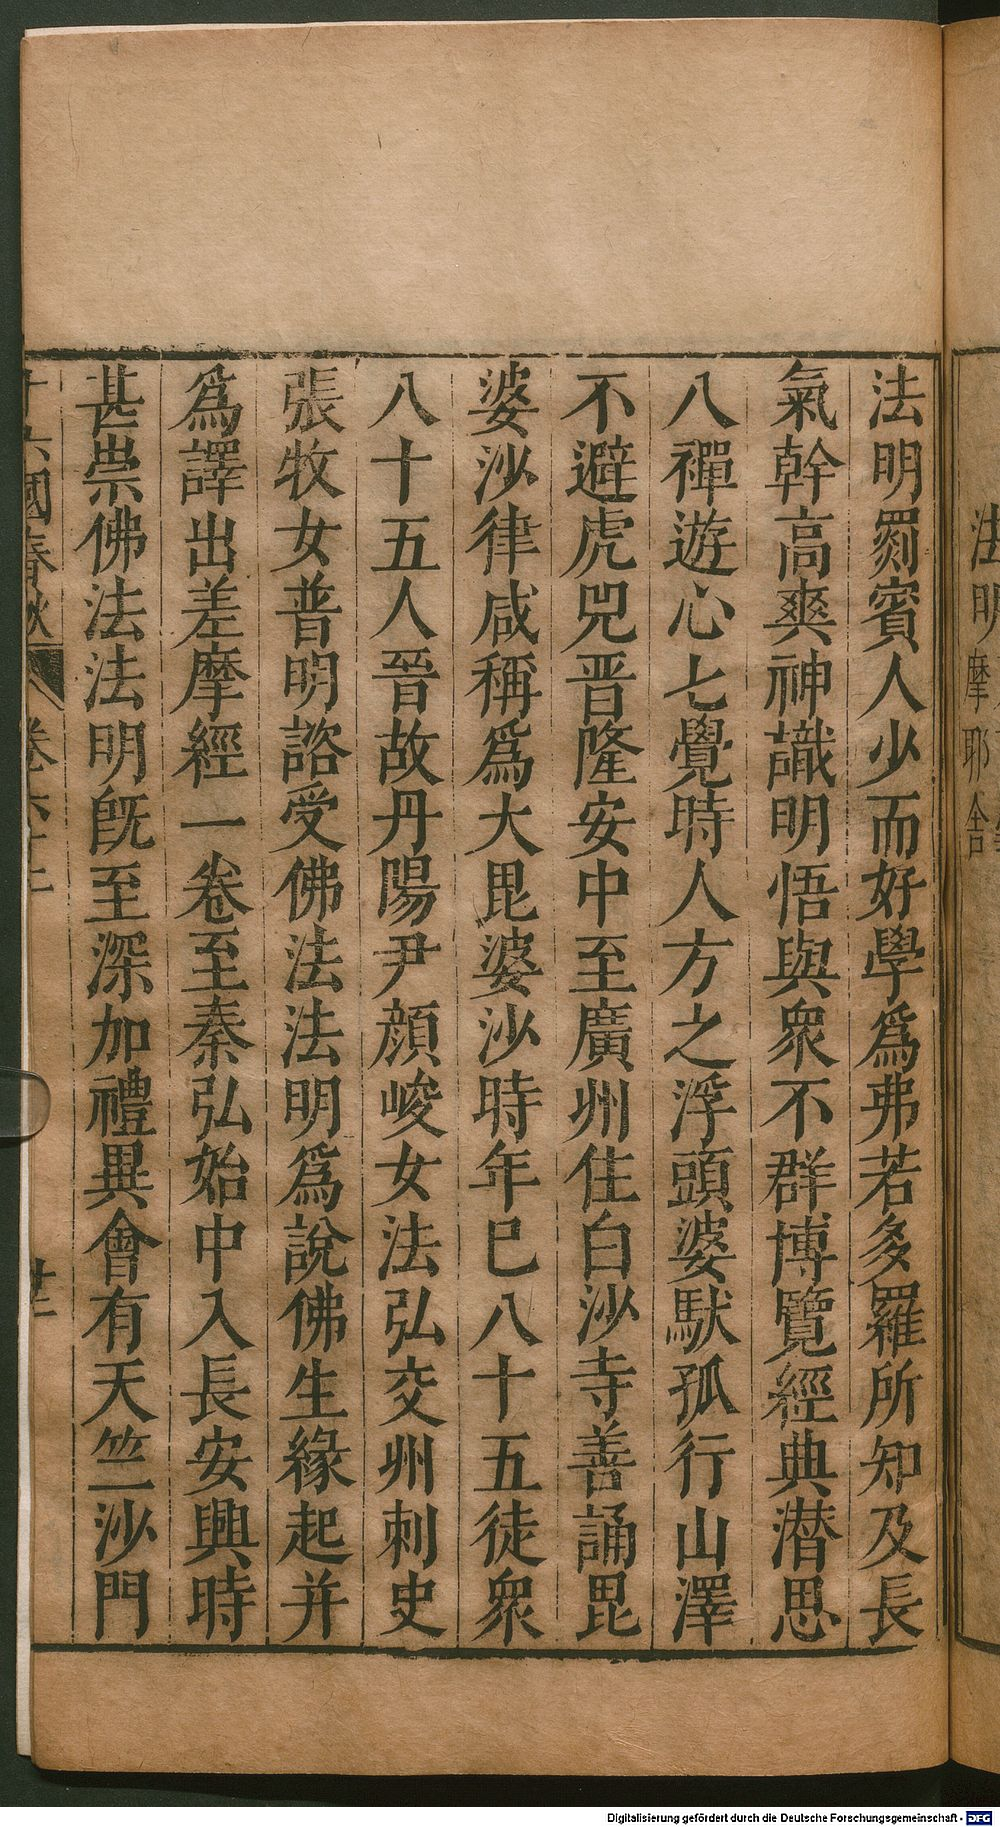 法明
摩耶舍
法明罽賓人少而好學爲弗若多羅所知及長
氣幹高爽神識明悟與衆不群博覽經典潛思
八禪遊心七覺時人方之浮頭婆馱孤行山澤
不避虎兕晋隆安中至廣州住白沙寺善誦毘
婆沙律咸稱爲大毘婆沙時年已八十五徒衆
八十五人晉故丹陽尹顔峻女法弘交州刺史
張牧女普明諮受佛法法明爲說佛生緣起并
爲譯出差摩經一卷至秦弘始中入長安興時
甚崇佛法法明旣至深加禮異會有天竺沙門
十六國春秋 卷六十二 廿二
Digitalisierung gefördert durch die Deutsche Forschungsgemeinschaft - DFG